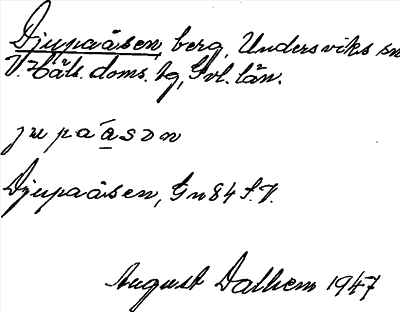 Djupaåsen, berg, Undersviks sn
V. Häls. doms. tg, Gvl. län.
jupåason
Djupaåsen, Gn 84 S.V.
August Dalhem 1947